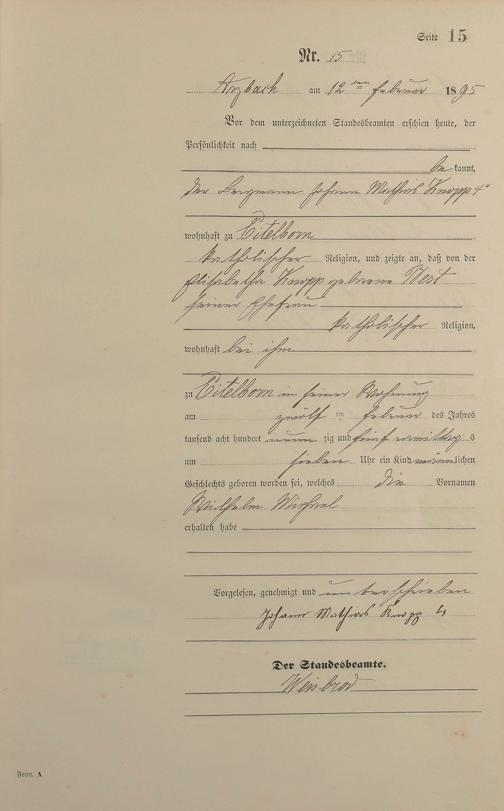 Seite 15
Nr. 15
Arzbach am 12ten Februar 1895
Vor dem unterzeichneten Standesbeamten erschien heute, der
Persönlichkeit nach
bekannt,
der Bergmann Johann Mathias Knopp 4r
wohnhaft zu Eitelborn
katholischer Religion, und zeigte an, daß von der
Elisabetha Knopp geborene
seiner Ehefrau
katholischer Religion,
wohnhaft bei ihm
zu Eitelborn in seiner Wohnung
am zwölf = Februar des Jahres
tausend acht hundert neunzig und fünf vormittags
um sieben Uhr ein Kind männlichen
Geschlechts geboren worden sei, welches die Vornamen
Wilhelm Michael
erhalten habe
Vorgelesen, genehmigt und unterschrieben
Johann Mathias Knopp 4
Der Standesbeamte.
Weisbrod
Form. A.